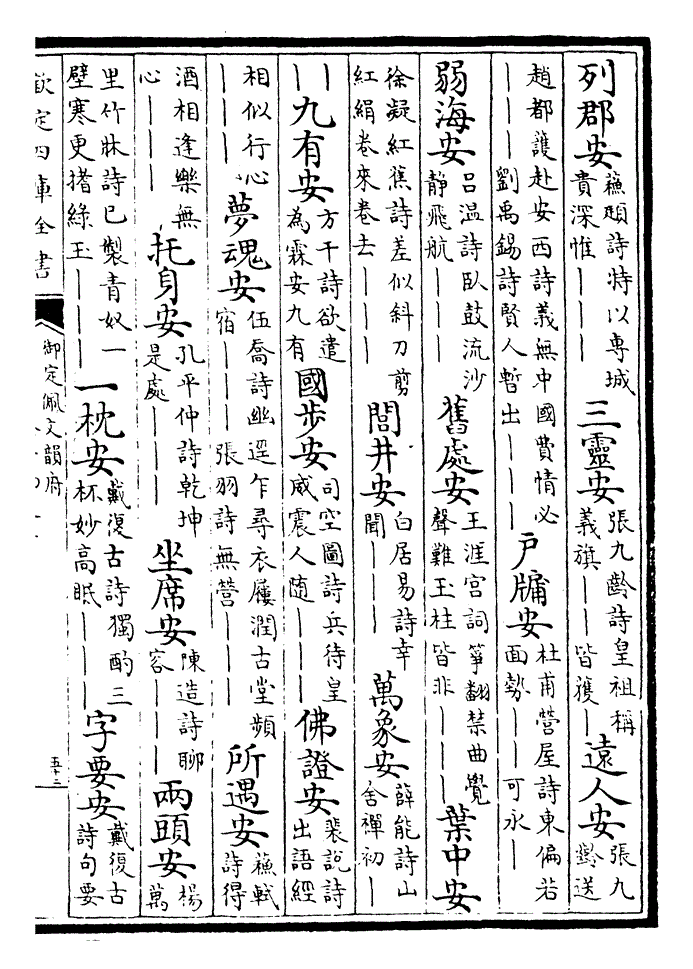 列郡安 蘇頲詩特以專城貴深惟｜｜｜ 三靈安 張九齡詩皇祖稱義旗｜｜｜皆獲｜ 遠人安 張九齡送
趙都護赴安西詩義無中國費情必｜｜｜劉禹錫詩賢人暫出｜｜｜ 戶牖安 杜甫營屋詩東偏若面勢｜｜｜可永｜
弱海安 吕温詩臥鼓流沙静飛航｜｜｜ 舊處安 王涯宫詞筝翻禁曲覺聲難玉柱皆非｜｜｜ 葉中安
徐凝紅蕉詩差似斜刀剪紅絹卷來卷去｜｜｜ 閭井安 白居易詩幸聞｜｜｜ 萬象安 薛能詩山舍禪初｜
｜｜ 九有安 方干詩欲遣為霖安九有 國步安 司空圖詩兵待皇威震人隨｜｜｜ 佛證安 裴説詩出語經
相似行心｜｜｜ 夢魂安 伍喬詩幽逕乍尋衣屨潤古堂頻宿｜｜｜張羽詩無營｜｜｜ 所遇安 蘇軾詩得
酒相逢樂無心｜｜｜ 托身安 孔平仲詩乾坤是處｜｜｜ 坐席安 陳造詩聊容｜｜｜ 兩頭安 楊萬
里竹牀詩已製青奴一壁寒更搘綠玉｜｜｜ 一枕安 戴復古詩獨酌三杯妙高眠｜｜｜ 字要安 戴復古詩句要
欽定四庫全書
御定佩文韻府
五十三